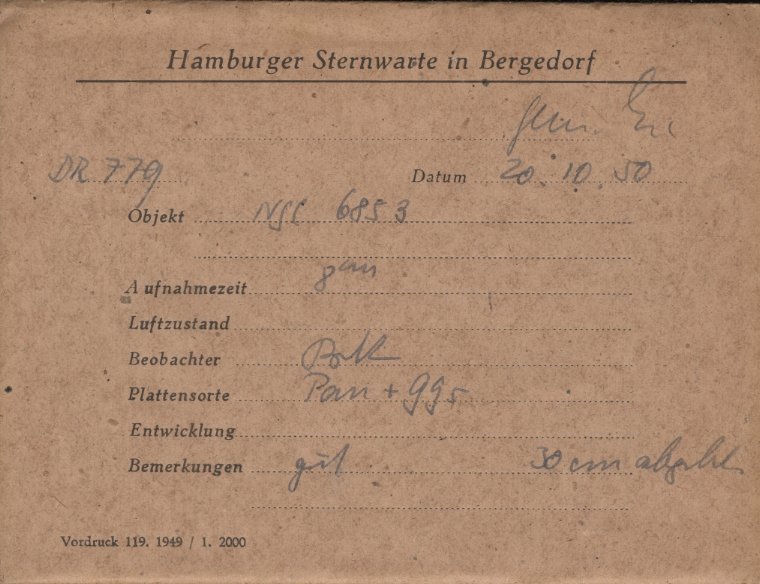 Hamburger Sternwarte in Bergedorf
DR 779 Datum 20.10.50
Objekt NGC 6853
Aufnahmezeit 8 m
Luftzustand
Beobachter
Plattensorte Pan +
Entwicklung
Bemerkungen gut 30 cm
Vordruck 119. 1949 / 1. 2000